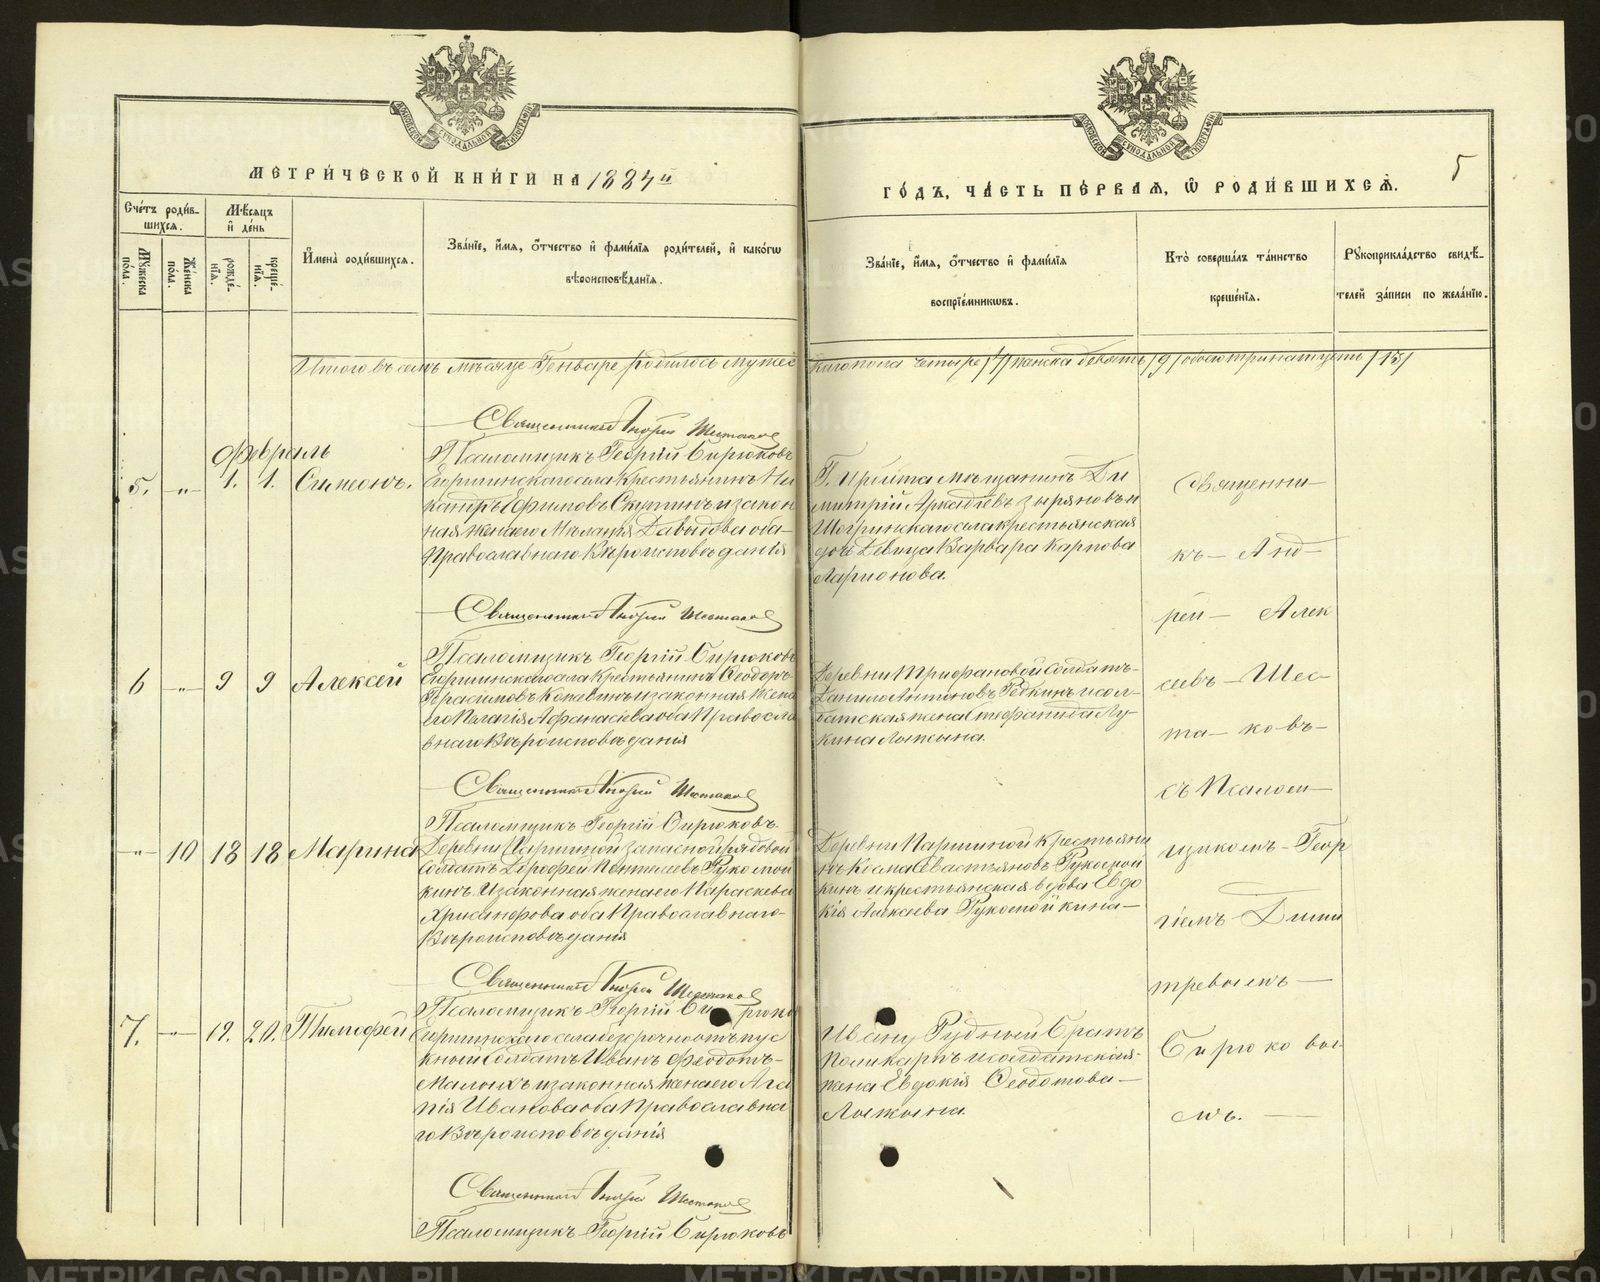 МЕТРИ́ЧЕСКОЙ КНИ́ГИ НА 1884 й
ГО́ДЪ, ЧА́СТЬ ПЕ́РВАЯ, Ѿ РОДИ́ВШИХСЯ.
5
Сче́тъ роди́в-
шихся.
Мѣсяцъ
и҆ де́нь
Му́жеска
по́ла.
Же́нска
по́ла.
рожде́-
нїя.
креще́-
нїя.
И҆мена̀ роди́вшихся.
Зва́нїе, и҆́мя, о҆́тчество и҆ фами́лїя роди́телей, и҆ како́гѡ
вѣроисповѣ́данїя.
Зва́нїе, и҆́мя, о҆́тчество и҆ фами́лїя
воспрїе́мниковъ.
Кто̀ соверша́лъ та́инство
креще́нїя.
Рꙋкоприкла́дство свидѣ́-
телей за́писи по жела́нїю.
Итого въ семъ мѣсяце Генваре родилось мужес
каго пола четыре /4/ женска девять /9/ обоего тринатцеть /13/
Священникъ Андрей Шестаковъ
Февраль
Псаломщикъ Георгій Бирюковъ
5. „ 1. 1. Симеонъ.
села Крестьянинъ Ни
каноръ Ефимовъ Скутинъ и закон
ная жена его Маланія Давыдова оба
Православнаго Вѣроисповѣданія
Г. Ирбита мѣщанинъ Ди
митрій Аркадіевъ Зыряновъ и
села крестьянская
дочь Девица Варвара Карпова
Ларионова.
Священни
къ Анд
рей Алек
сеевъ Шес
та ковъ
съ Псалом
щикомъ Геор
гіемъ Дими
тревымъ
Бирю ковы
мъ.
Священникъ Андрей Шестаковъ
Псаломщикъ Георгій Бирюковъ
6 „ 9 9 Алексѣй
села Крестьянинъ Ѳеодоръ
Герасимовъ и законная жена
его Пелагія Афанасіева оба Правосла
внаго Вѣроисповѣданія
Деревни Трифановой солдатъ
Данило Антоновъ Редкинъ и сол
датская жена Стефанида Лу
кина Лыжина.
Священникъ Андрей Шестаковъ
Псаломщикъ Георгій Бирюковъ.
„ 10 18 18 Марина
Деревни Паршиной запасной рядовой
солдатъ Дорофей Пантилеевъ Рукомой
кинъ и законная жена его Параскева
Хрисанфова оба Православнаго
Вѣроисповѣданія
Деревни Паршиной Крестьяни
нъ Косма Севастьяновъ Рукомой
кинъ и крестьянская вдова Евдо
кія Алексѣева Рукомойкина
Священникъ Андрей Шестаковъ
Псаломщикъ Георгій Бирюко
7. „ 19. 20. Тимофей
села безсрочноотпус
кной солдатъ Иванъ Феодотъ
Малыхъ и законная жена его Ага
пія Иванова оба Православна
го Вѣроисповѣданія
Ивану Рудный Братъ
Поликарпъ и солдатская
жена Евдокія Ѳеодотова
Лыжина
Священникъ Андрей Шестаковъ
Псаломщикъ Георгій Бирюковъ
METRIKI.GASO-URAL.RU